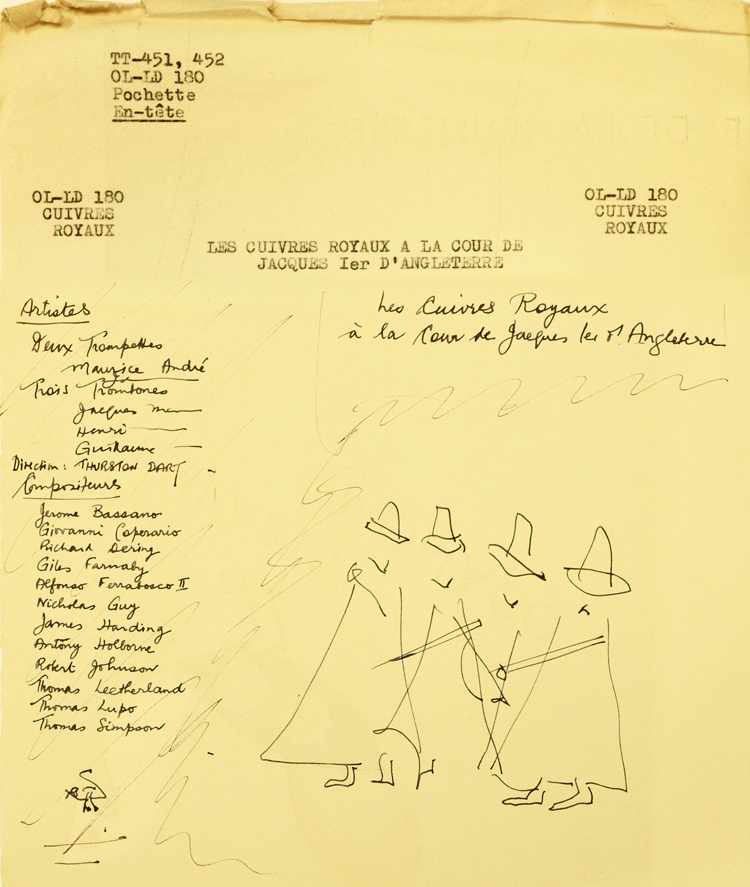 TT-451, 452
OL-LD 180
Pochette
En-tête
OL-LD 180
CUIVRES
ROYAUX
OL-LD 180
CUIVRES
ROYAUX
LES CUIVRES ROYAUX A LA COUR DE
JACQUES Ier D'ANGLETERRE
Artistes
Deux Trompettes
Maurice André
Trois Trombones
Jacques
Henri
Guillaume
Direction: THURSTON DART
Compositeurs
Jerome Bassano
Giovanni Coperario
Richard Dering
Giles Farnaby
Alfonso Ferrabosco II
Nicholas Guy
James Harding
Antony Holborne
Robert Johnson
Thomas Leetherland
Thomas Lupo
Thomas Simpson
Les Cuivres Royaux
à la Cour de Jacques Ier d'Angleterre